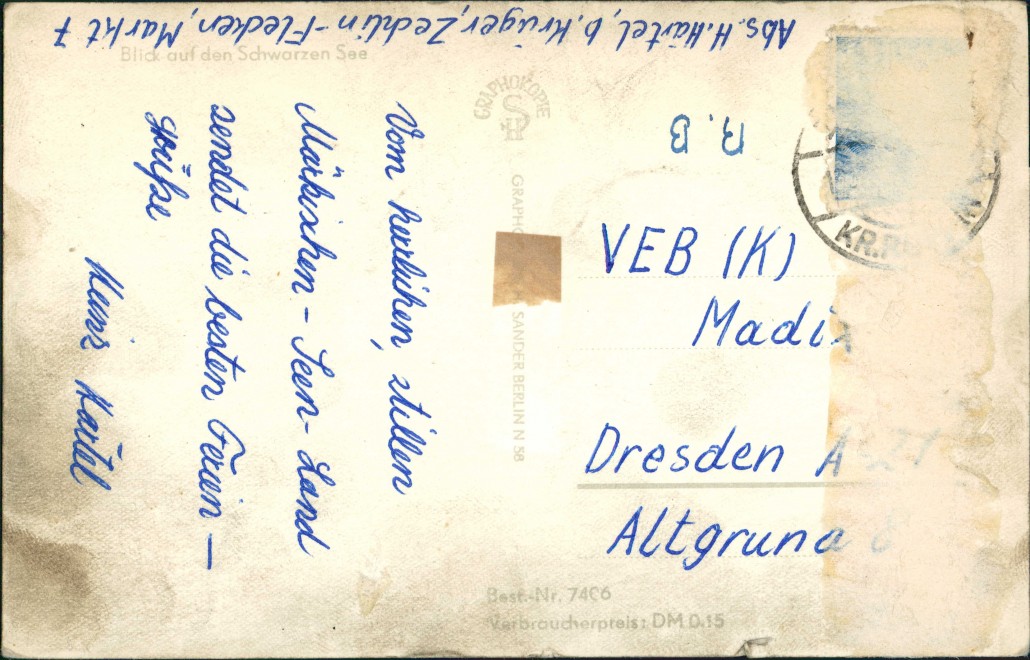 Abs. H. Härtel, b. Krüger, Zechlin-Flecken, Markt 7
Blick auf den Schwarzen See
Vom herrlichen, stillen
Märkischen-Seen-Land
sendet die besten Ferien-
grüße
Härtel
GRAPHOKOPIE
SANDER BERLIN N 58
R.B
KR.
VEB (K)
Dresden
Best.-Nr. 7406
Verbraucherpreis: DM 0.15